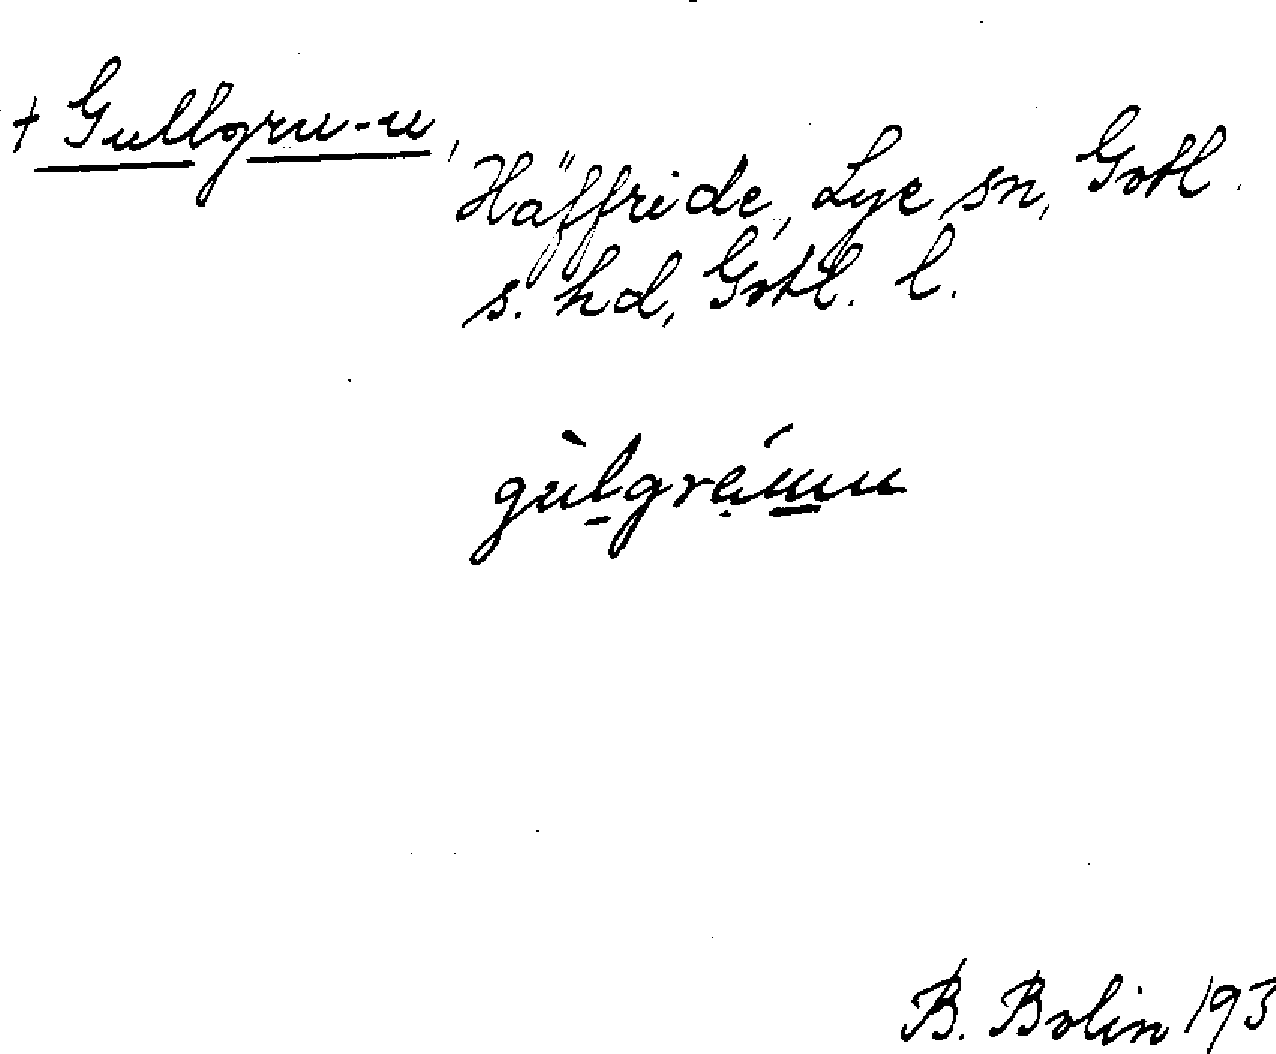 + Gullgru-u,
Häffride, Lye sn, Gotl.
s. hd, Gotl. l.
B. Bolin 193